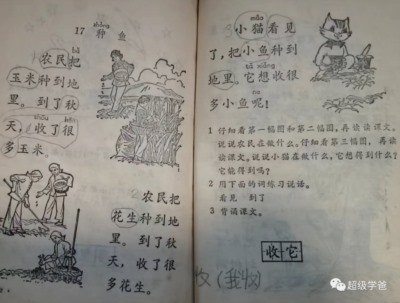 17 种鱼
农民把
玉米种到地
里。到了秋
天，收了很
多玉米。
农民把
花生种到地
里。到了秋
天，收了很
多花生。
小猫看见
了，把小鱼种到
地里。它想收很
多小鱼呢！
1 仔细看第一幅图和第二幅图，再读读课文。
说说农民在做什么。仔细看第三幅图，再读
读课文。说说小猫在做什么。它想得到什么？
它能得到吗？
2 用下面的词练习说话。
看见 到了
3 背诵课文。
收它
收(我收)
超级学爸